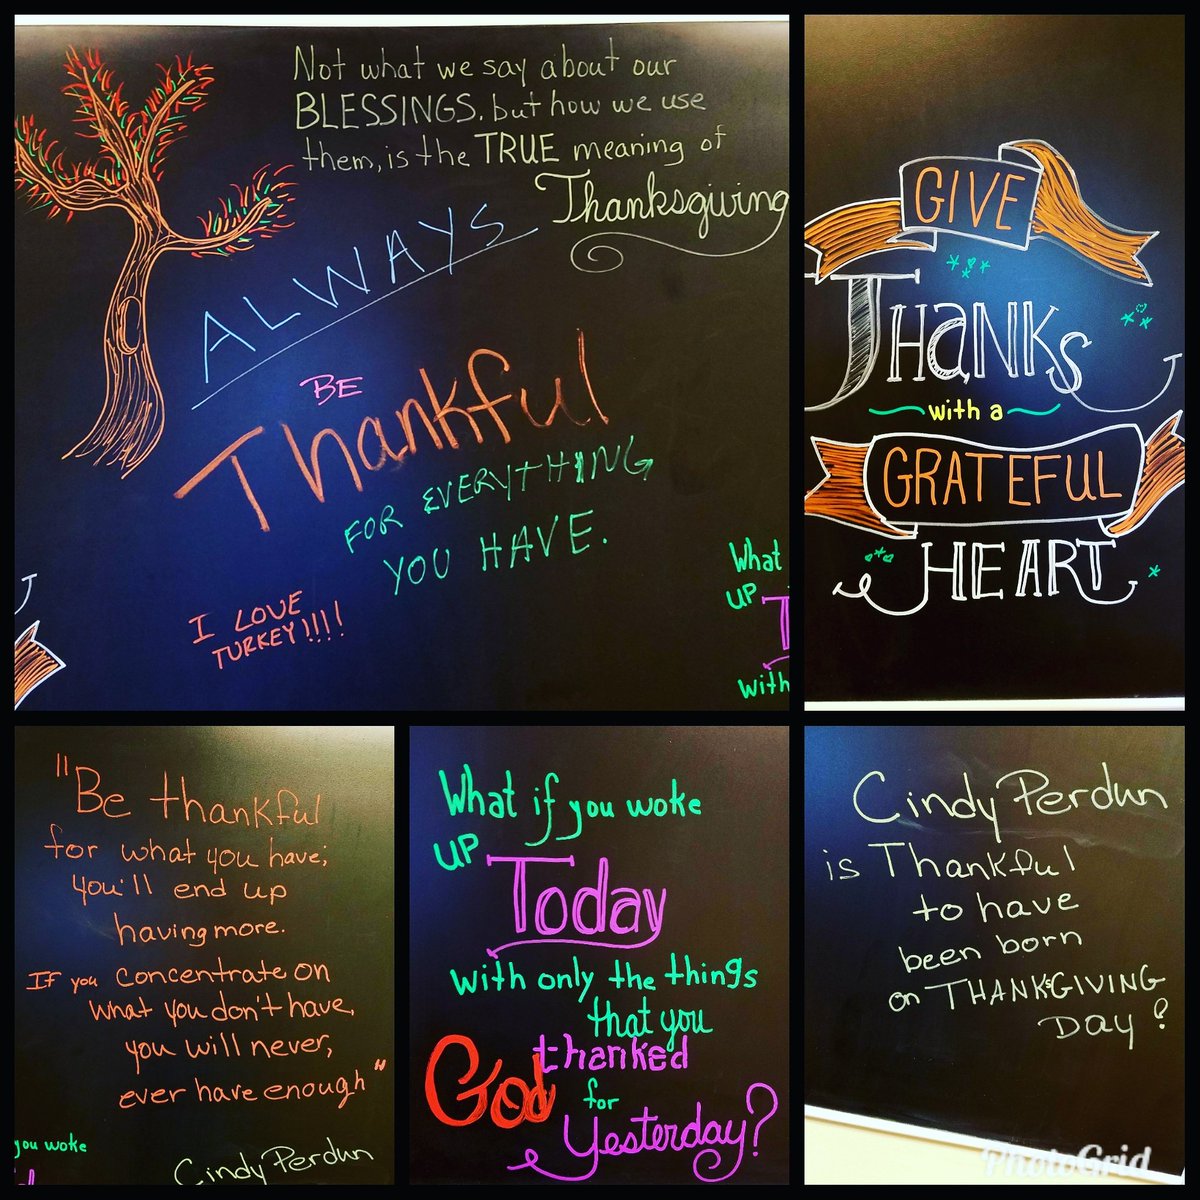 Not what we say about our
BLESSINGS, but how we use
them, is the TRUE meaning of
Thanksgiving
ALWAYS
BE
Thankful
FOR EVERYTHING
YOU HAVE.
I LOVE
TURKEY!!!!
What
UP
T
with
GIVE
THANKS
with a
GRATEFUL
HEART
"Be thankful
for what you have;
you'll end up
having more.
If you concentrate on
what you don't have,
you will never,
ever have enough"
you woke
Cindy Perdun
What if you woke
UP
Today
with only the things
that you
God thanked
for
Yesterday?
Cindy Perdun
is Thankful
to have
been born
on THANKSGIVING
Day?
PhotoGrid